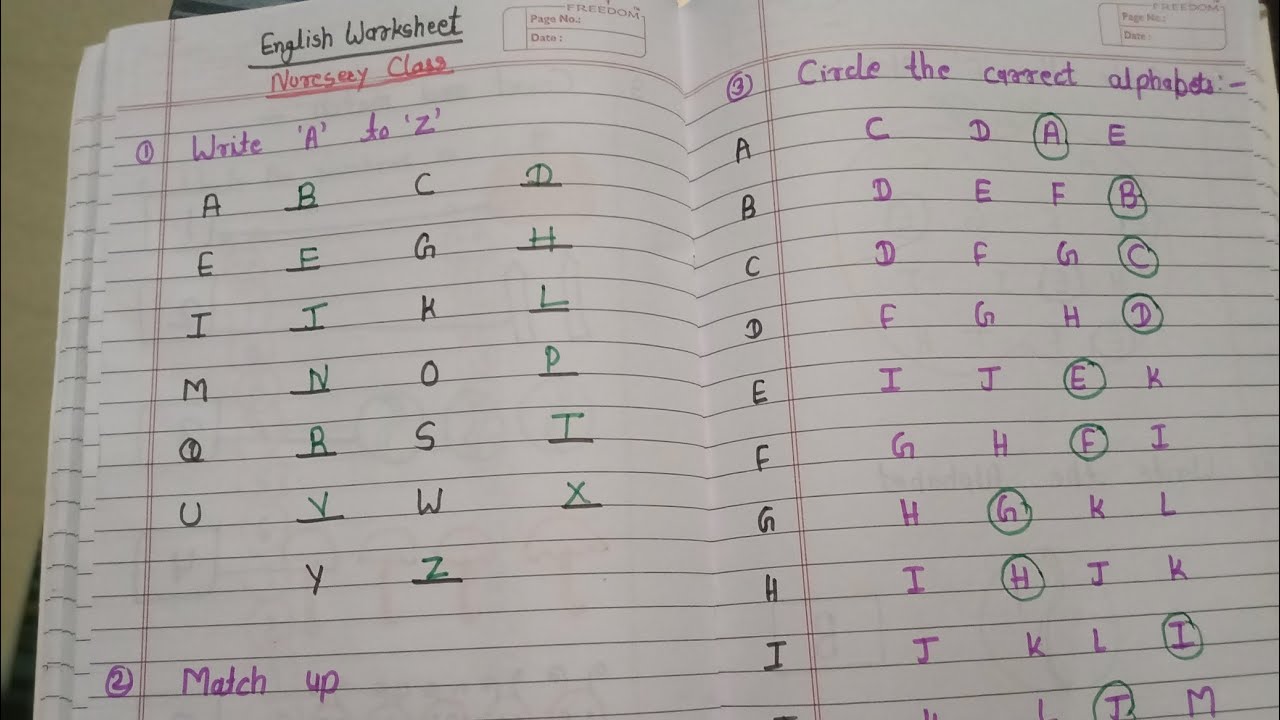 English Worksheet
Nuresery Class
FREEDOM
Page No.:
Date:
① Write 'A' to 'Z'
A B C D
E F G H
I J K L
M N O P
Q R S T
U V W X
Y Z
② Match up
FREEDOM
Page No.:
Date:
③ Circle the correct alphabets:-
A C D A E
B D E F B
C D F G C
D F G H D
E I J E K
F G H F I
G H G K L
H I H J K
I J K L I
J M